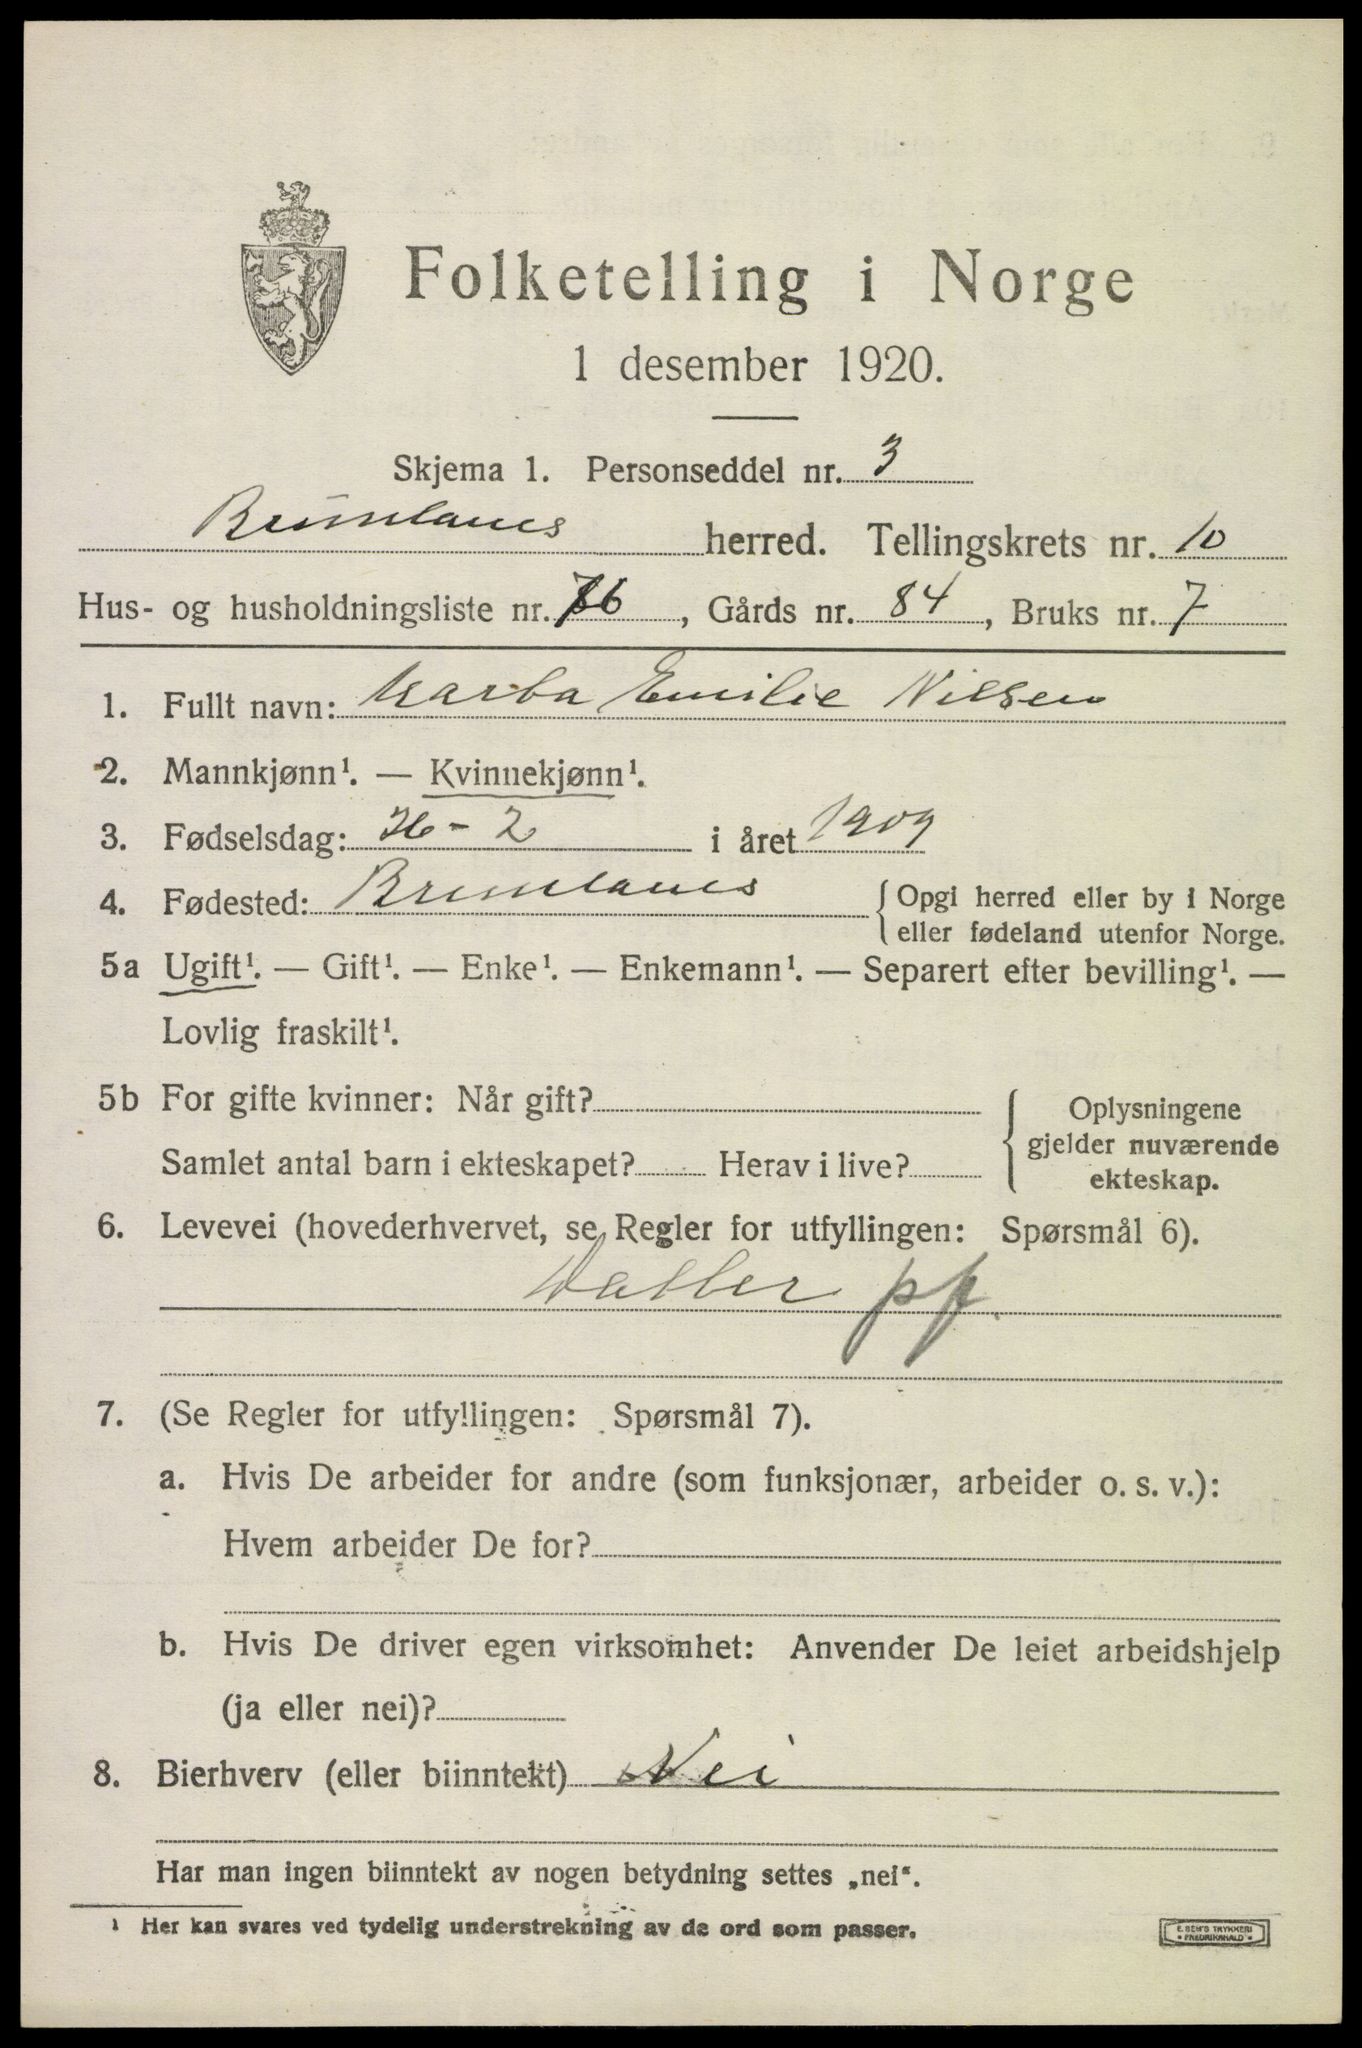 Folketelling i Norge
1 desember 1920.
Skjema 1. Personseddel nr. 3
Brunlanes herred. Tellingskrets nr. 10
Hus- og husholdningsliste nr. 76, Gårds nr. 84, Bruks nr. 7
1. Fullt navn: Marta Emilie Nilsen
2. Mannkjønn¹. — Kvinnekjønn¹.
3. Fødselsdag: 26-2 i året 1909
4. Fødested: Brunlanes {Opgi herred eller by i Norge
eller fødeland utenfor Norge.
5a Ugift¹. — Gift¹. — Enke¹. — Enkemann¹. — Separert efter bevilling¹. —
Lovlig fraskilt¹.
5b For gifte kvinner: Når gift?
Samlet antal barn i ekteskapet? Herav i live?
{Oplysningene
gjelder nuværende
ekteskap.
6. Levevei (hovederhvervet, se Regler for utfyllingen: Spørsmål 6).
Datter pf.
7. (Se Regler for utfyllingen: Spørsmål 7).
a. Hvis De arbeider for andre (som funksjonær, arbeider o. s. v.):
Hvem arbeider De for?
b. Hvis De driver egen virksomhet: Anvender De leiet arbeidshjelp
(ja eller nei)?
8. Bierhverv (eller biinntekt) Nei
Har man ingen biinntekt av nogen betydning settes „nei“.
¹ Her kan svares ved tydelig understrekning av de ord som passer.
E. SEM'S TRYKKERI
* FREDRIKSHALD *